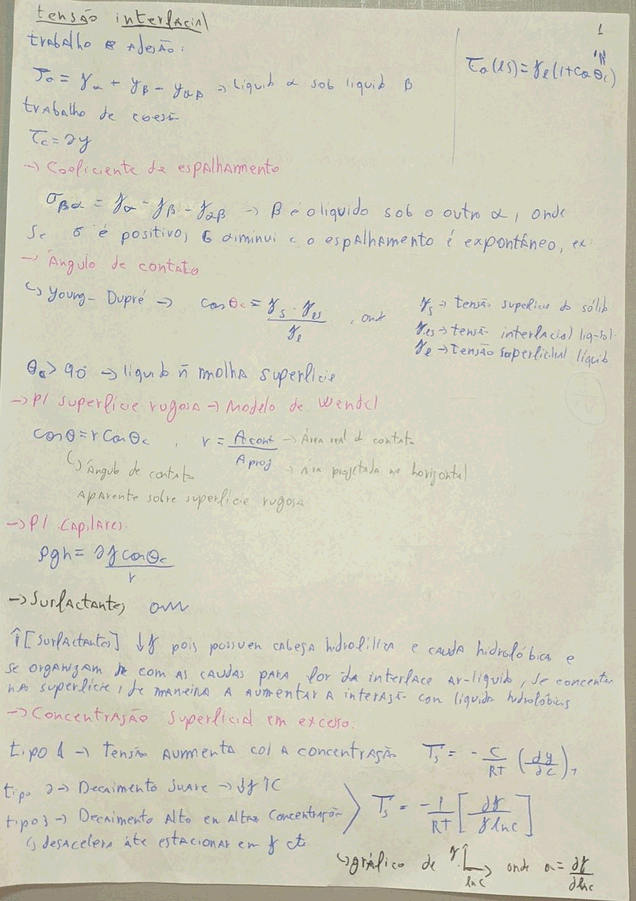 tensão interfacial
1
trabalho e Adesão:
τa = γα + γβ - γαβ → Líquido α sob líquido β
τa(ls) = γl(1+cosθc)
trabalho de coesão
τc = 2γ
→ Coeficiente de espalhamento
σβα = γα - γβ - γαβ → β é o líquido sob o outro α, onde
se σ é positivo, G diminui e o espalhamento é expontâneo, ex:
→ Ângulo de contato
↳ Young-Dupré → cosθc = γs - γls / γl , onde
γs → tensão superfície do sólido
γls → tensão interfacial líq-sól.
γl → tensão superficial líquido
θc > 90 → líquido ñ molha superfície
→ P/ superfície rugosa → Modelo de Wenzel
cosθ = r cosθc , r = Acont / Aproj
→ Área real de contato
→ área projetada na horizontal
↳ Ângulo de contato
Aparente sobre superfície rugosa
→ P/ Capilares:
ρgh = 2γ cosθc / r
→ Surfactantes
↑[surfactantes] ↓γ pois possuem cabeça hidrofílica e cauda hidrofóbica e
se organizam com as caudas para for da interface ar-líquido, se concenter
na superfície, de maneira a aumentar a interação con líquido hidrofóbicos
→ Concentração superficial em excesso:
tipo 1 → Tensão Aumenta col a concentração Γs = - C/RT (∂γ/∂C)T
tipo 2 → Decaimento Suave → ↓γ ↑C
tipo 3 → Decaimento Alto en Altas Concentração
Γs = -1/RT [∂γ/∂lnc]
↳ desacelera áte estacionar em γ ct
↳ gráfico de γ lnc onde a = ∂γ/∂lnc